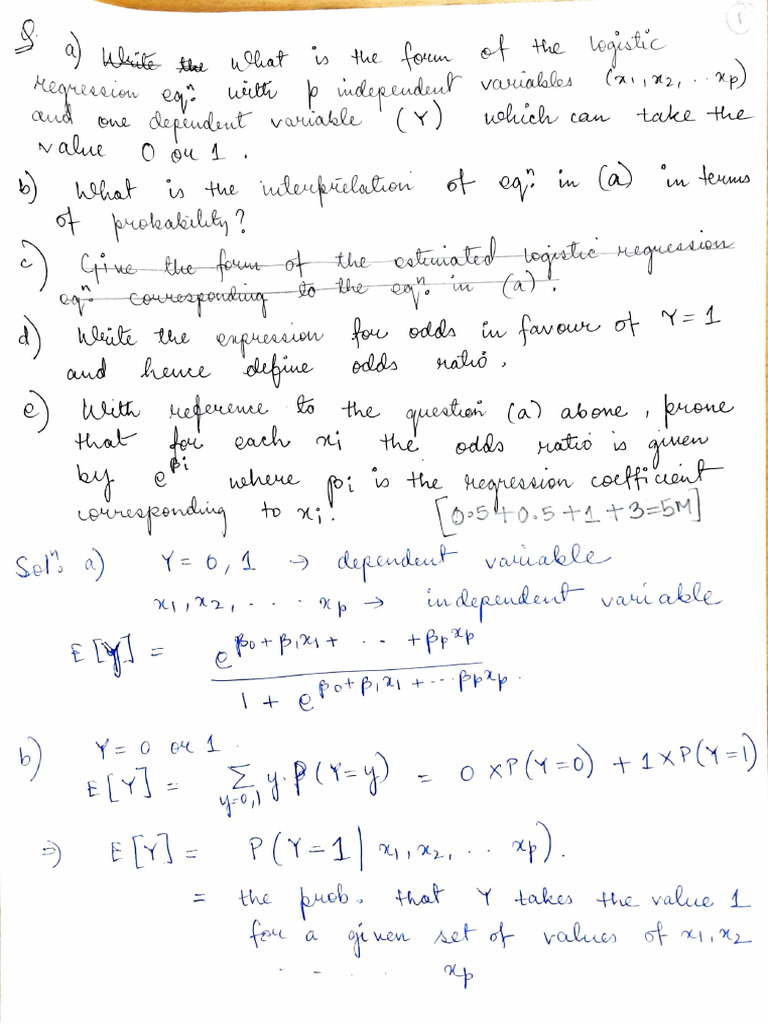 1
Q. a) Write the What is the form of the logistic
regression eqn: with p independent variables (x1, x2, .. xp)
and one dependent variable (Y) which can take the
value 0 or 1.
b) What is the interpretation of eqn: in (a) in terms
of probability?
c) Give the form of the estimated logistic regression
eqn: corresponding to the eqn: in (a).
d) Write the expression for odds in favour of Y = 1
and hence define odds ratio.
e) With reference to the question (a) above, prove
that for each xi the odds ratio is given
by e^βi where βi is the regression coefficient
corresponding to xi. [0.5+0.5+1+3=5M]
Soln: a) Y = 0, 1 → dependent variable
x1, x2, . . . . xp → independent variable
E[Y] = e^β0+β1x1+ . . . +βpxp
1 + e^β0+β1x1+...βpxp.
b) Y = 0 or 1.
E[Y] = Σ y=0,1 y.P(Y=y) = 0 x P(Y=0) + 1 x P(Y=1)
⇒ E[Y] = P(Y=1 | x1, x2, .. xp).
= the prob. that Y takes the value 1
for a given set of values of x1, x2
- - . . . xp